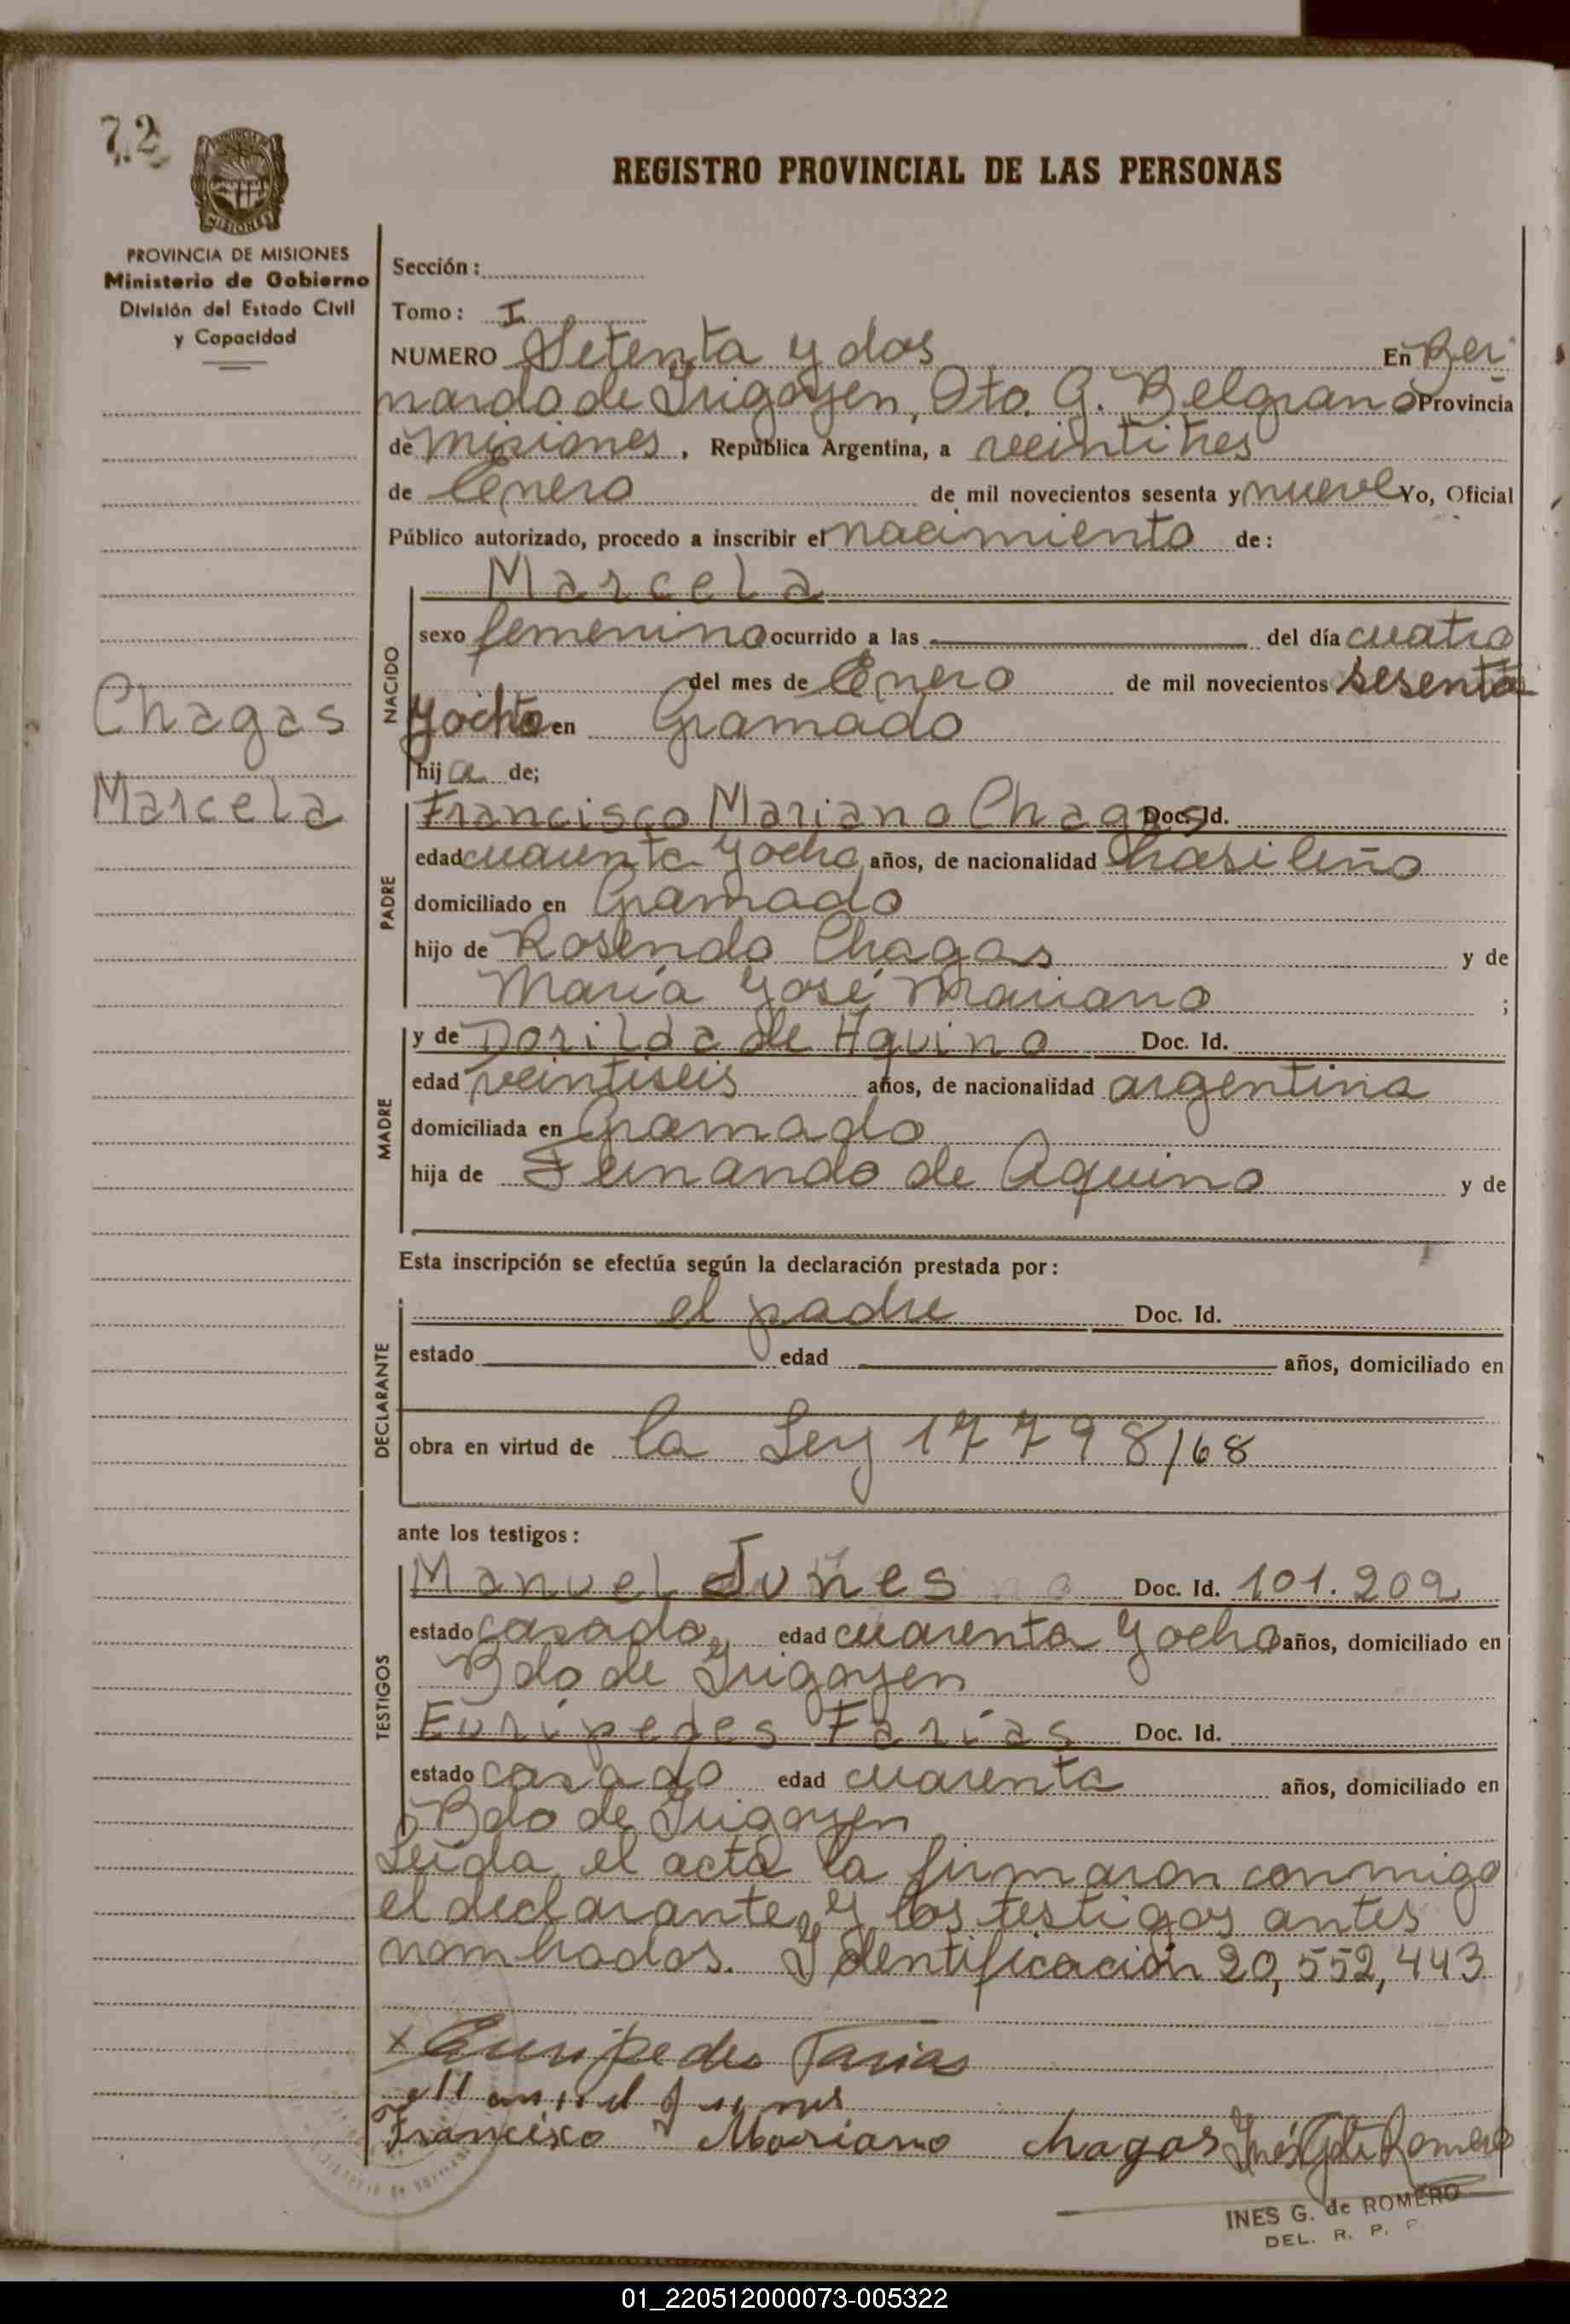 72
REGISTRO PROVINCIAL DE LAS PERSONAS
PROVINCIA DE MISIONES
Ministerio de Gobierno
División del Estado Civil
y Capacidad
Chagas
Marcela
Sección:
Tomo: I
NUMERO Setenta y dos En Ber
nardo de Irigoyen, Dto. G. Belgrano Provincia
de Misiones, República Argentina, a veintitres
de Enero de mil novecientos sesenta y nueve Yo, Oficial
Público autorizado, procedo a inscribir el nacimiento de:
NACIDO
Marcela
sexo femenino ocurrido a las del día cuatro
del mes de Enero de mil novecientos sesenta
y ocho en Gramado
hija de;
PADRE
Francisco Mariano Chagas Doc. Id.
edad cuarenta y ocho años, de nacionalidad brasileño
domiciliado en Gramado
hijo de Rosendo Chagas y de
María José Mariano ;
MADRE
y de Dorilda de Aquino Doc. Id.
edad veintiseis años, de nacionalidad argentina
domiciliada en Gramado
hija de Fernando de Aquino y de
Esta inscripción se efectúa según la declaración prestada por:
DECLARANTE
el padre Doc. Id.
estado edad años, domiciliado en
obra en virtud de la Ley 17798/68
ante los testigos:
TESTIGOS
Manuel Junes Doc. Id. 101.202
estado casado, edad cuarenta y ocho años, domiciliado en
Bdo de Irigoyen
Eurípedes Farías Doc. Id.
estado casado edad cuarenta años, domiciliado en
Bdo de Irigoyen
Leida el acta la firmaron conmigo
el declarante, y los testigos antes
nombrados. Identificación 20,552,443
x Euripedes Farias
Manuel Junes
Francisco Mariano chagas Inés G de Romero
INES G. de ROMERO
DEL. R. P. P
01_220512000073-005322